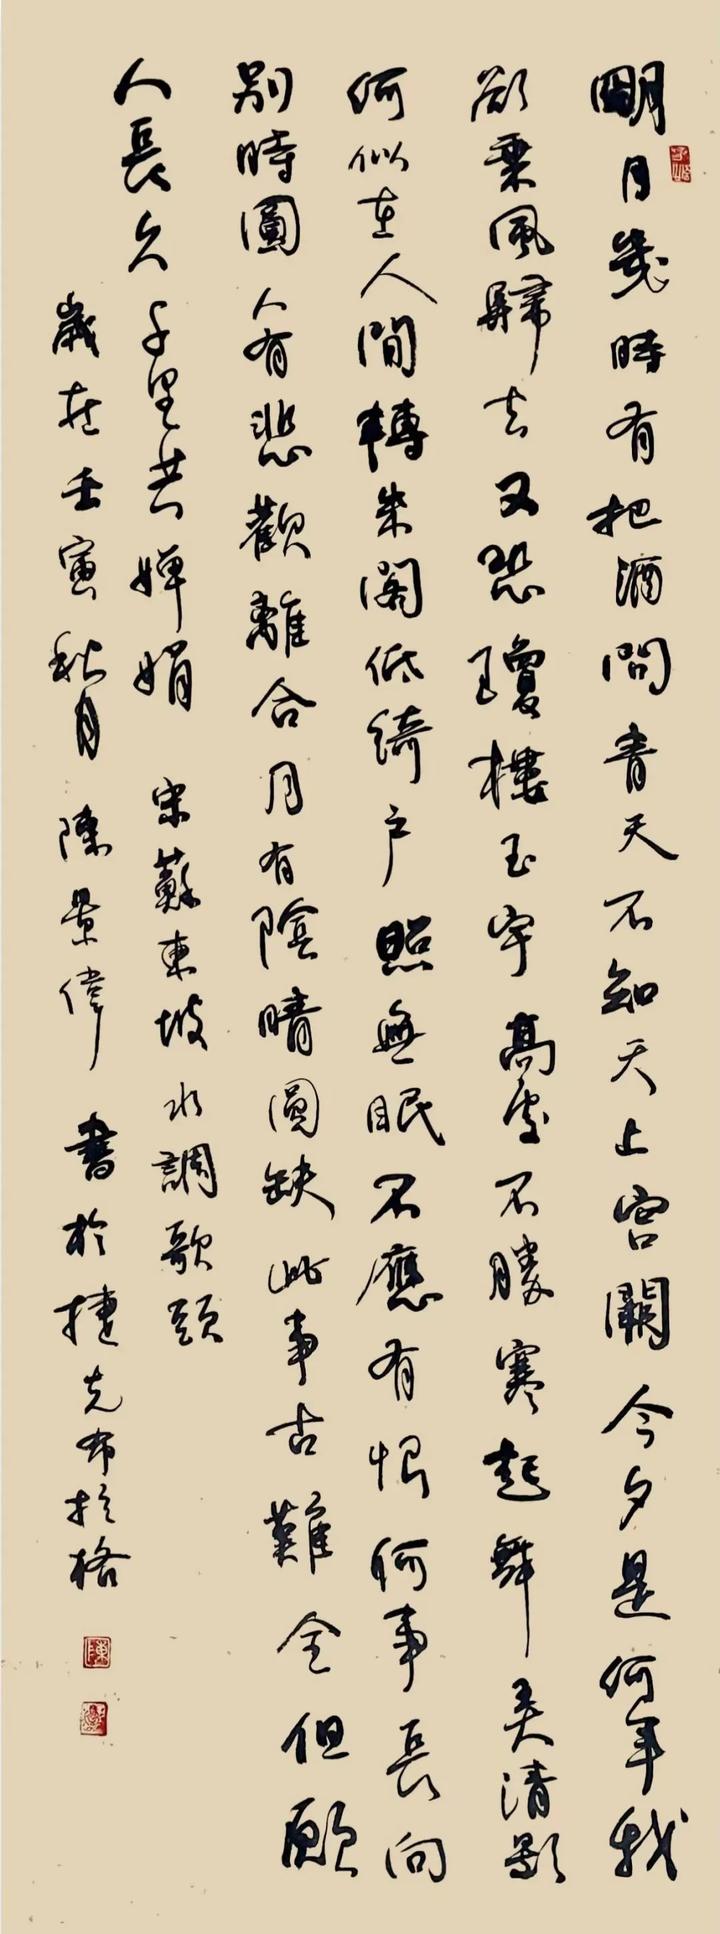 朙月幾時有把酒問青天不知天上宮闕今夕是何年我
欲乘風歸去又恐瓊樓玉宇高處不勝寒起舞弄清影
何似在人間轉朱閣低綺户照無眠不應有恨何事長向
別時圓人有悲歡離合月有陰晴圓缺此事古難全但願
人長久千里共嬋娟 宋蘇東坡水調歌頭
歲在壬寅秋月陳景偉書於捷克布拉格
陳